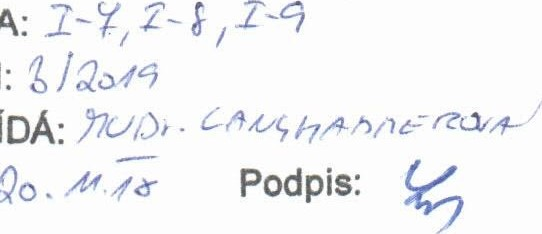 A: I-7, I-8, I-9
: 3/2019
ÍDÁ: MUDr. LANGHAMMEROVÁ
20. 11. 18 Podpis: